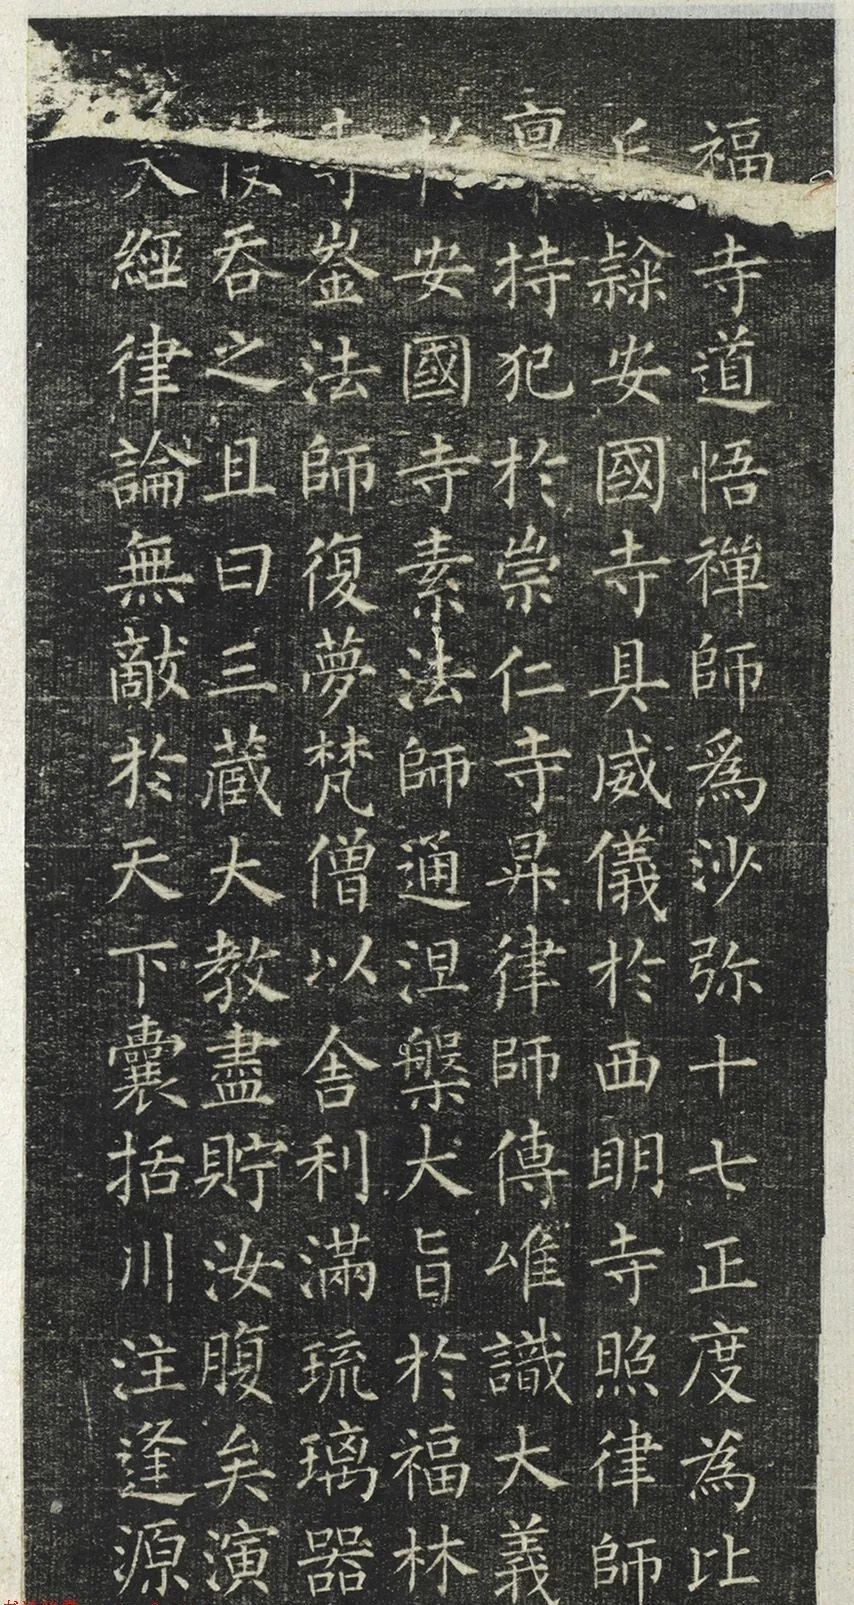 福寺道悟禪師爲沙弥十七正度為比
丘隸安國寺具威儀於西明寺照律師
稟持犯於崇仁寺昇律師傳唯識大義
於安國寺素法師通涅槃大旨於福林
寺崟法師復夢梵僧以舍利滿琉璃器
使吞之且曰三藏大教盡貯汝腹矣演
入經律論無敵於天下囊括川注逢源